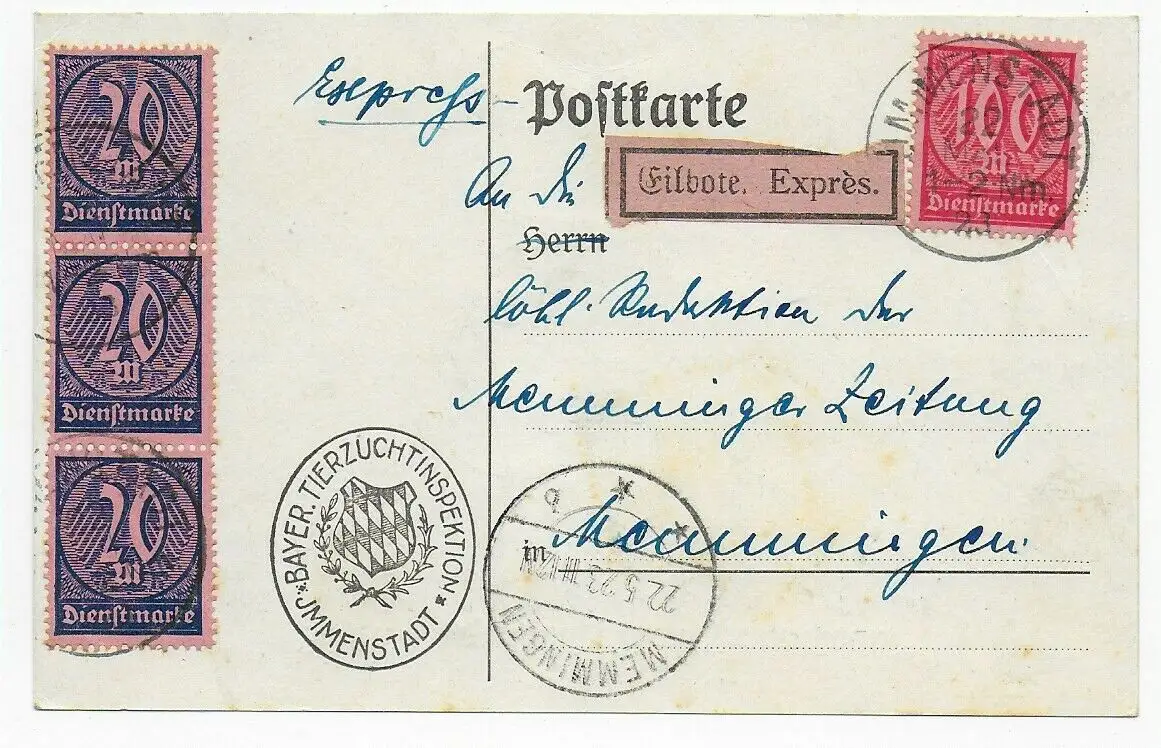 20
M
Dienstmarke
20
M
Dienstmarke
20
M
Dienstmarke
Express-
Postkarte
Eilbote. Exprès.
100
M
Dienstmarke
IMMENSTADT
22
1-2 Nm
23
An die
Herrn
löbl. Redaktion der
Memminger Zeitung
in Memmingen.
* BAYER. TIERZUCHTINSPEKTION *
JMMENSTADT
MEMMINGEN
22.5.23.